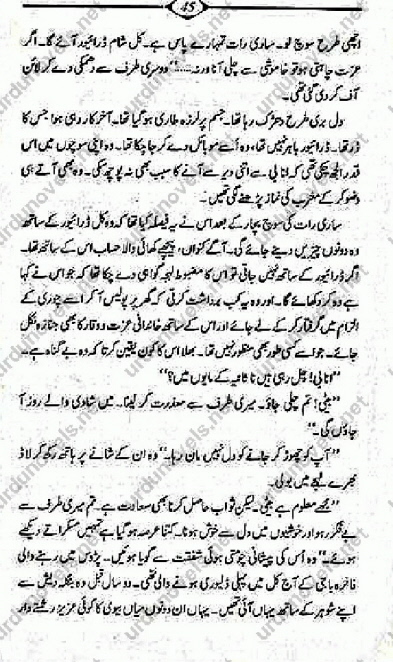 45
اچھی طرح سوچ لو۔ ساری رات تمہارے پاس ہے۔ کل شام ڈرائیور آئے گا۔ اگر
عزت چاہتی ہو تو خاموشی سے چلی آنا ورنہ......“ دوسری طرف سے دھمکی دے کر لائن
آف کر دی گئی تھی۔
دل بری طرح دھڑک رہا تھا۔ جسم پر لرزہ طاری ہو گیا تھا۔ آخر کار وہی ہوا جس کا
ڈر تھا۔ ڈرائیور باہر نہیں تھا، وہ اُسے موبائل دے کر جا چکا تھا۔ وہ اپنی سوچوں میں اس
قدر الجھ چکی تھی کہ انا بی سے اتنی دیر سے آنے کا سبب بھی نہ پوچھ سکی۔ وہ بھی آتے ہی
وضو کر کے مغرب کی نماز پڑھنے لگی تھیں۔
ساری رات کی سوچ بچار کے بعد اس نے یہ فیصلہ کیا تھا کہ وہ کل ڈرائیور کے ساتھ
وہ دونوں چیزیں دینے جائے گی۔ آگے کنواں، پیچھے کھائی والا حساب اس کے ساتھ تھا۔
اگر ڈرائیور کے ساتھ نہیں جاتی تو اس کا مضبوط لہجہ گواہی دے چکا تھا کہ جو اس نے کہا
ہے وہ کر دکھائے گا۔ اور وہ یہ کب برداشت کرتی کہ گھر پر پولیس آ کر اسے چوری کے
الزام میں گرفتار کر کے لے جائے اور اس کے ساتھ خاندانی عزت و وقار کا بھی جنازہ نکل
جائے۔ جو اسے کسی طور بھی منظور نہیں تھا۔ بھلا اس کا کون یقین کرتا کہ وہ بے گناہ ہے۔
”انا بی! چل رہی ہیں نا ثانیہ کے مایوں میں؟“
”بیٹی! تم چلی جاؤ۔ میری طرف سے معذرت کر لینا۔ میں شادی والے روز آ
جاؤں گی۔“
”آپ کو چھوڑ کر جانے کو دل نہیں مان رہا۔“ وہ ان کے شانے پر ہاتھ رکھ کر لاڈ
بھرے لہجے میں بولی۔
”مجھے معلوم ہے بیٹی۔ لیکن ثواب حاصل کرنا بھی سعادت ہے۔ تم میری طرف سے
بے فکر رہو اور خوشیوں میں دل سے خوش ہونا۔ کتنا عرصہ ہو گیا ہے تمہیں مسکراتے دیکھے
ہوئے۔“ وہ اُس کی پیشانی چومتی ہوئی شفقت سے گویا ہوئیں۔ پڑوس میں رہنے والی
فاخرہ باجی کے آج کل میں پہلی ڈلیوری ہونے والی تھی۔ دو سال قبل وہ بنگلہ دیش سے
اپنے شوہر کے ساتھ یہاں آئی تھیں۔ یہاں ان دونوں میاں بیوی کا کوئی عزیز رشتے دار